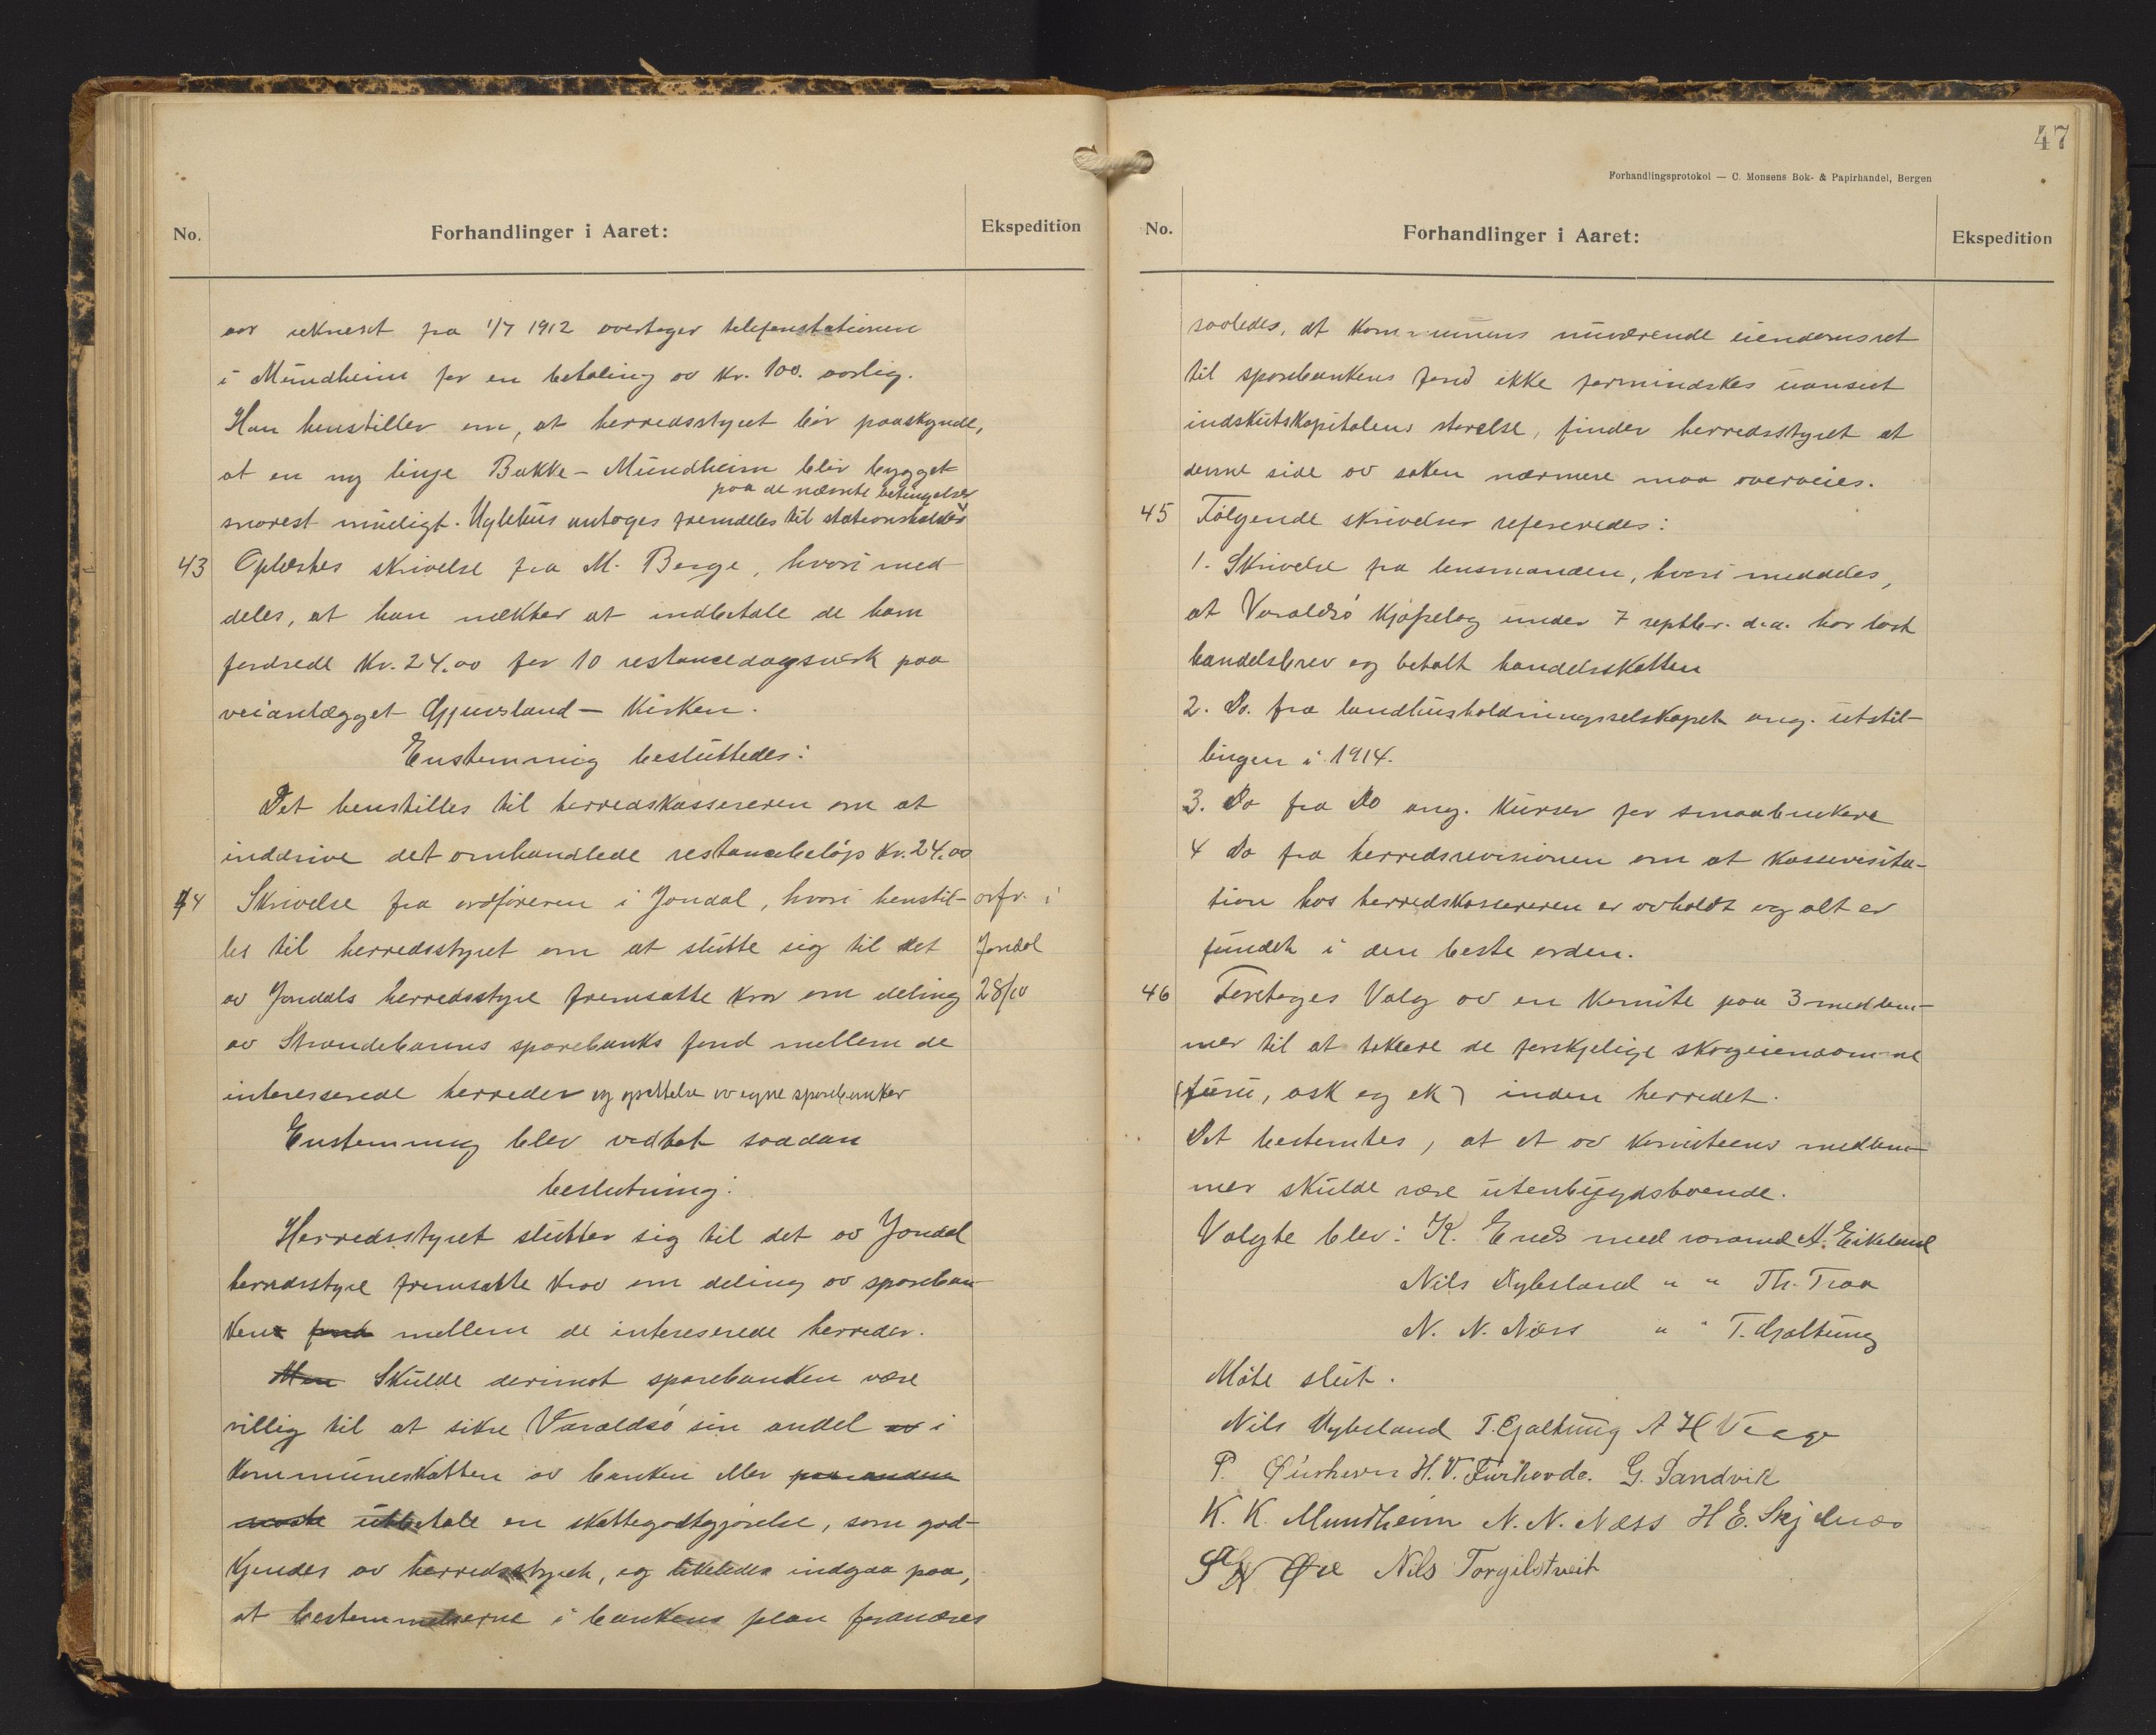 No.
Forhandlinger i Aaret:
Ekspedition
aar reknet fra 1/7 1912 overtager telefonstationen
i Mundheim for en betaling av Kr. 100. aarlig.
Han henstiller om, at herredsstyret bør paaskynde,
at en ny linje Bakke - Mundheim blir bygget
paa de nævnte betingelser
snarest muligt. Uglehus antoges fremdeles til stationsholder
43 Oplæstes skrivelse fra M. Berge, hvori med-
deles, at han nækter at indbetale de ham
fordrede Kr. 24.00 for 10 restancedagsverk paa
veianlægget Gjuvsland - Kirken.
Enstemmig besluttedes:
Det henstilles til herredskassereren om at
inddrive det omhandlede restancebeløp Kr. 24.00
44 Skrivelse fra ordføreren i Jondal, hvori henstil-
les til herredsstyret om at slutte sig til det
av Jondals herredsstyre fremsatte krav om deling
av Strandebarms sparebanks fond mellem de
interesserede herreder og oprettelse av egne sparebanker
ordf. i
Jondal
28/10
Enstemmig blev vedtat saadan
beslutning:
Herredsstyret slutter sig til det av Jondal
herredsstyre fremsatte krav om deling av spareban-
ken fond mellem de intereserede herreder.
Men Skulde derimot sparebanken være
villig til at sikre Varaldsø sin andel av i
kommuneskatten av banken eller paa anden
maate utbetale en skattegodtgjørelse, som god-
kjendes av herredsstyret, og likeledes indgaa paa,
at bestemmelserne i bankens plan forandres
47
Forhandlingsprotokol — C. Monsens Bok- & Papirhandel, Bergen
No.
Forhandlinger i Aaret:
Ekspedition
saaledes, at kommunens nuværende eiendomsret
til sparebankens fond ikke formindskes uanset
indskutskapitalens størelse, finder herredsstyret at
denne side av saken nærmere maa overveies.
45 Følgende skrivelser refereredes:
1. Skrivelse fra lensmanden, hvori meddeles,
at Varaldsø Kjøpelag under 7 septbr. d.a. har løst
handelsbrev og betalt handelsskatten
2. Do. fra landhusholdningsselskapet ang. utstil-
lingen i 1914.
3. Do fra Do ang. Kurser for smaabrukere
4 Do fra herredsrevisionen om at kassevisita-
tion hos herredskassereren er avholdt og alt er
fundet i den beste orden.
46 Foretoges Valg av en Komite paa 3 medlem-
mer til at taksere de forskjelige skogeiendomme
(furu, ask og ek) inden herredet.
Det bestemtes, at et av komiteens medlem-
mer skulde være utenbygdsboende.
Valgte blev: K. Enes med varamd A. Eikeland
Nils Dybsland " " Th. Traa
N. N. Næss " " T. Gjaltung
Møte slut.
Nils Dybsland T. Gjaltung A H Vaage
P. H. V. Furhovde. G. Sandvik
K. K. Mundheim N. N. Næss H E. Skjelnæs
Øie Nils Torgilstveit